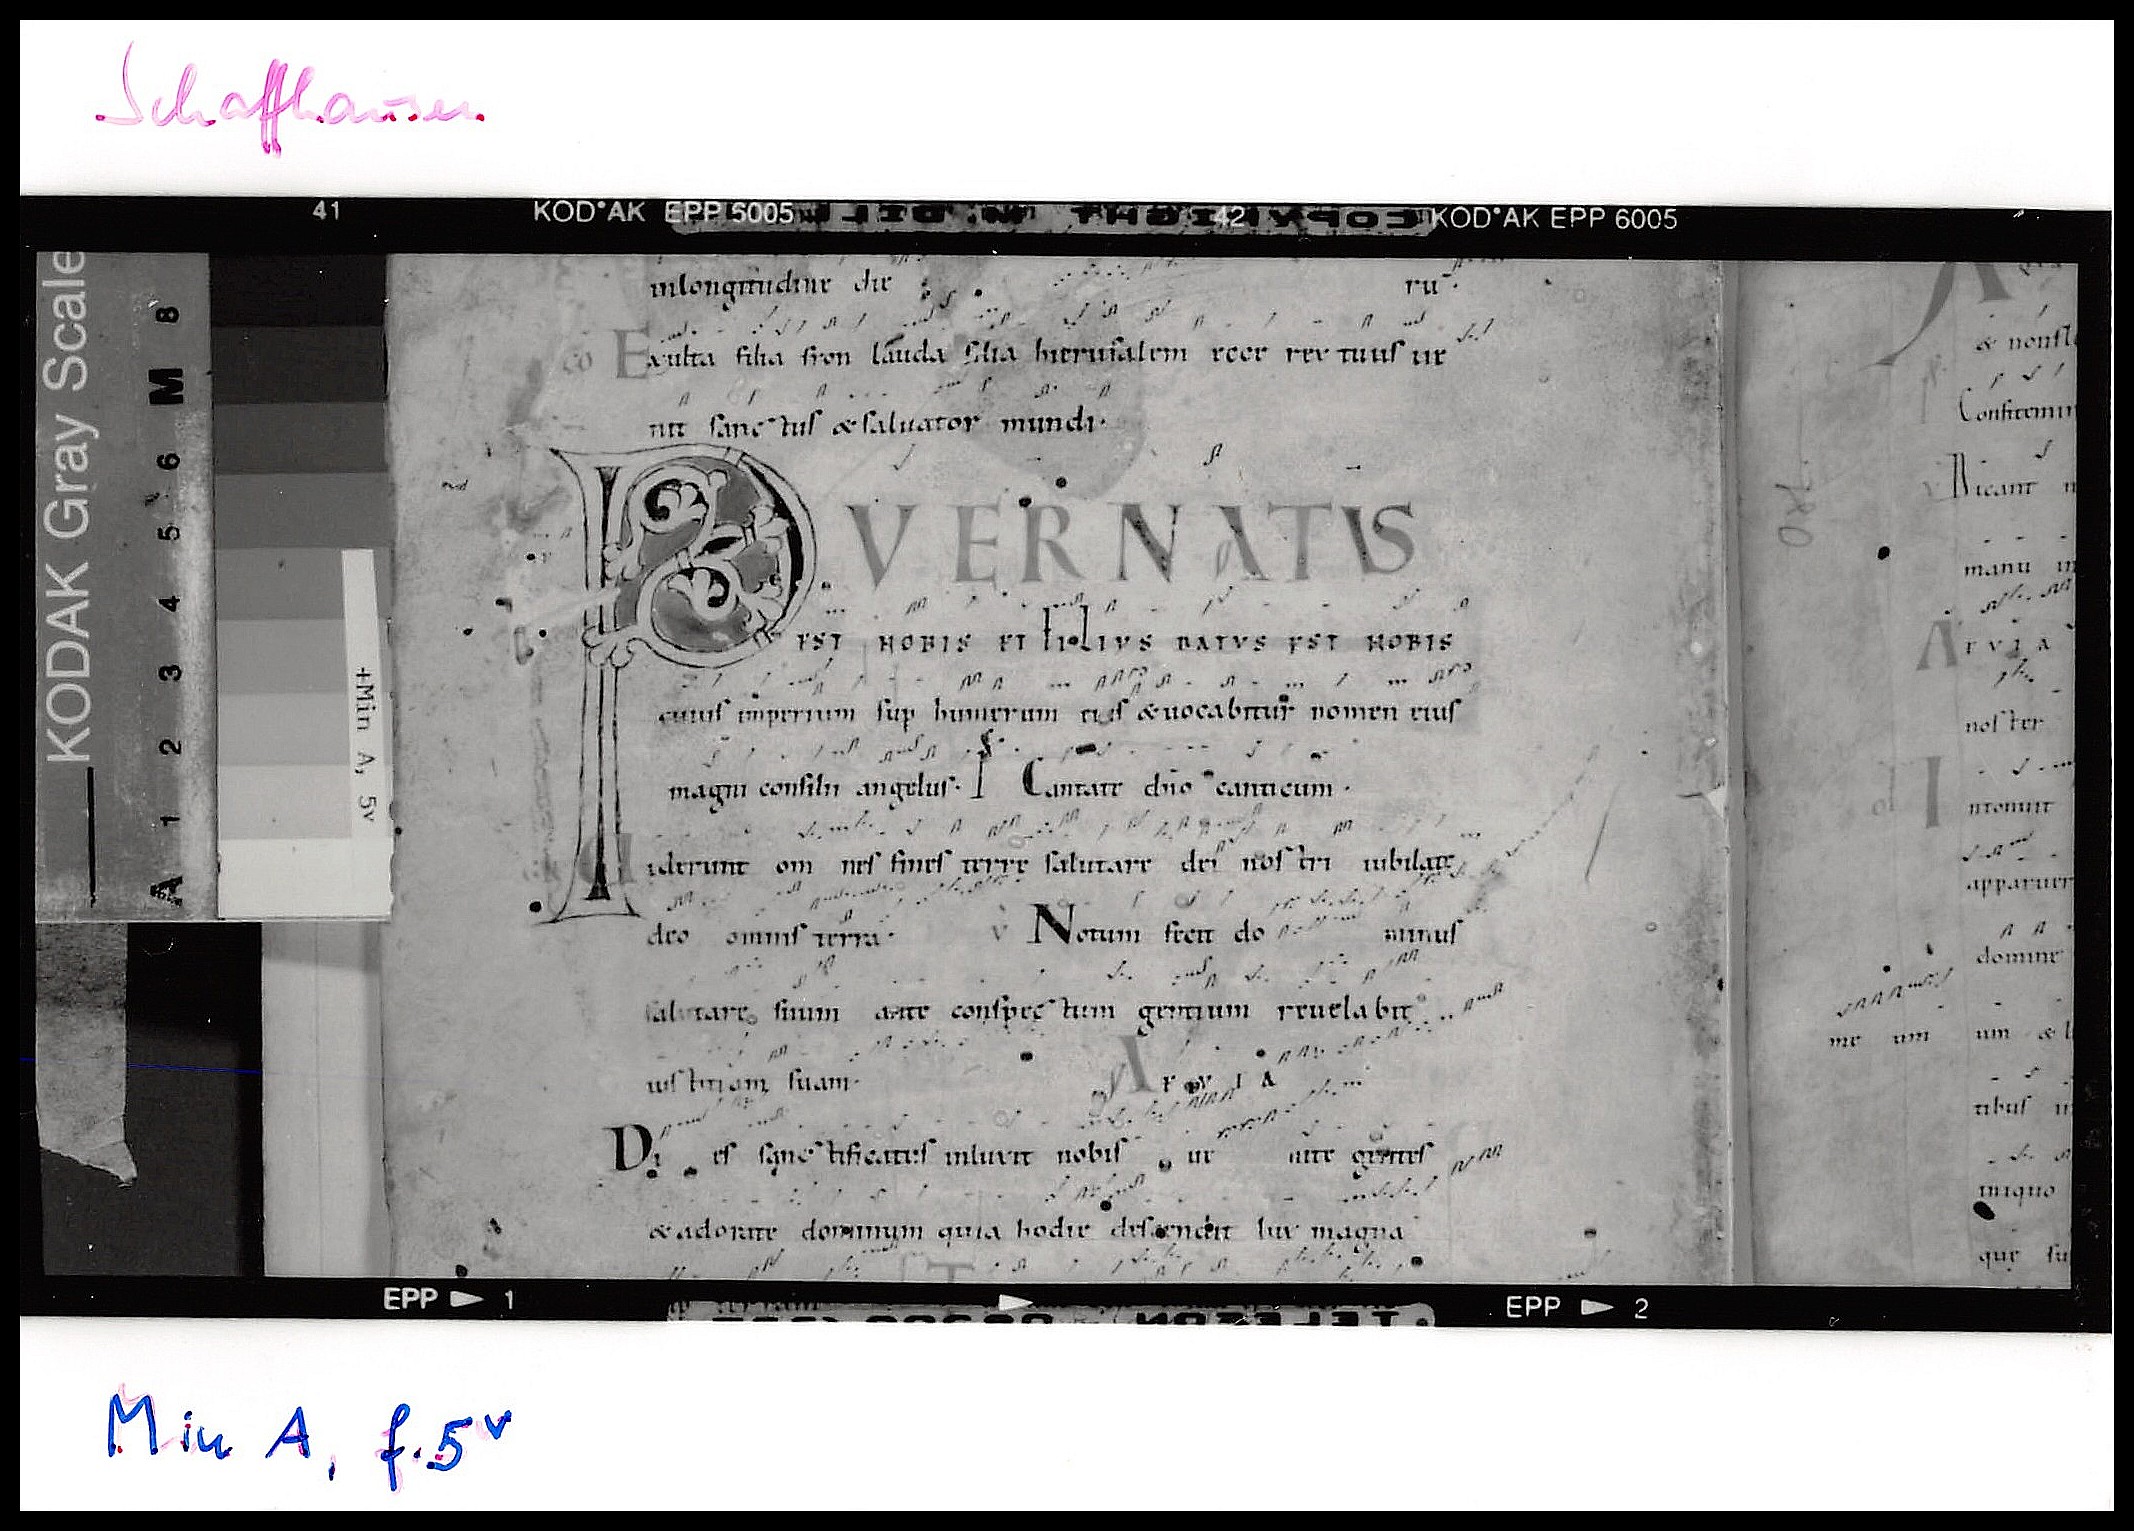 Schaffhausen
41 KOD*AK EPP 6005 COPYRIGHT 42 KOD*AK EPP 6005
KODAK Gray Scale
A 1 2 3 4 5 6 M 8
+Min A, 5v
inlongitudine die rū.
co Exulta filia sion lauda filia hierusalem ecce rex tuus ue
nit sanctus & saluator mundi.
PVER NATVS
EST NOBIS ET FILIVS DATVS EST NOBIS
cuius imperium sup humerum eius & uocabitur nomen eius
magni consilii angelus. Cantate dn̄o canticum.
uiderunt om nes fines terre salutare dei nostri iubilate
deo omnis terra. v Notum fecit do minus
salutare suum ante conspectum gentium reuelabit
iustitiam suam. A E V I A
Di es sanctificatus inluxit nobis ue nite gentes
& adorate dominum quia hodie descendit lux magna
& nonst
Confitemin
v Dicant n
manu in
A E V I A
noster
of Intonuit
apparuer
domine
me um um & l
tibus
iniquo
que su
EPP 1 EPP 2
TELEFON
Min A, f. 5v